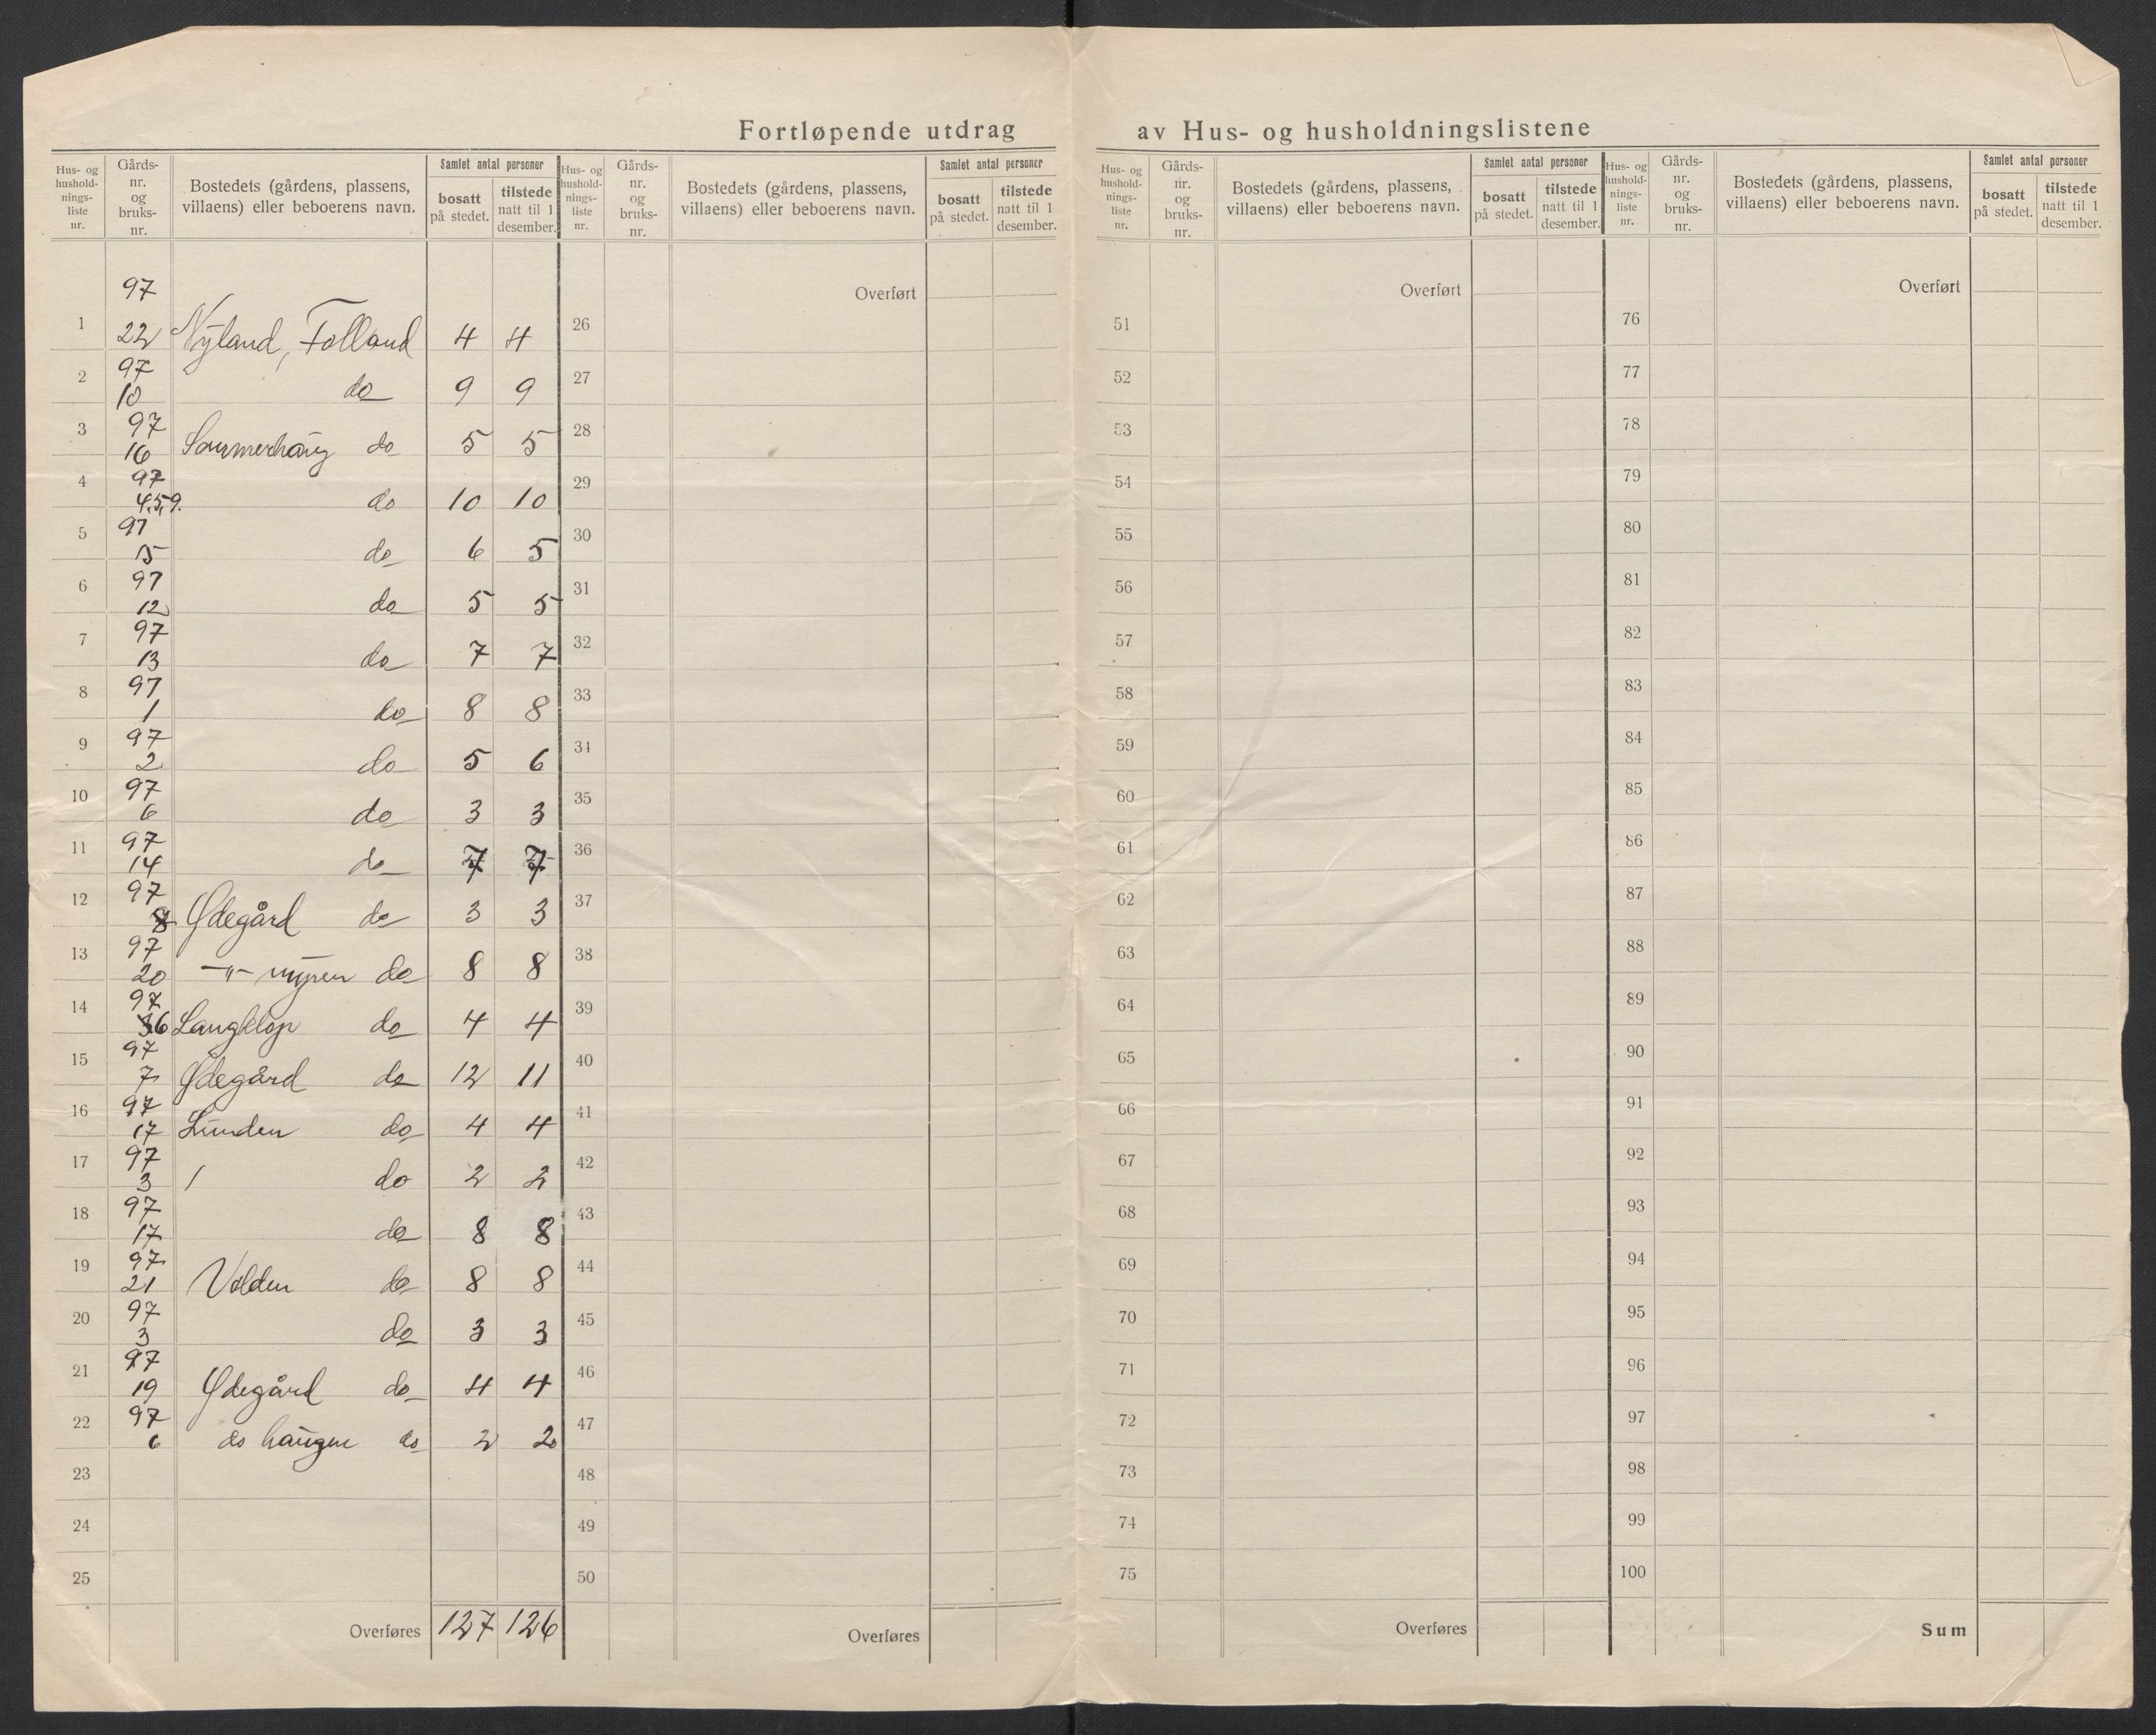 Fortløpende utdrag av Hus- og husholdningslistene
Hus- og hushold- nings- liste nr. | Gårds- nr. og bruks- nr. | Bostedets (gårdens, plassens, villaens) eller beboerens navn. | Samlet antal personer | bosatt på stedet. | tilstede natt til 1 desember.
Hus- og hushold- nings- liste nr. | Gårds- nr. og bruks- nr. | Bostedets (gårdens, plassens, villaens) eller beboerens navn. | Samlet antal personer | bosatt på stedet. | tilstede natt til 1 desember.
Hus- og hushold- nings- liste nr. | Gårds- nr. og bruks- nr. | Bostedets (gårdens, plassens, villaens) eller beboerens navn. | Samlet antal personer | bosatt på stedet. | tilstede natt til 1 desember.
Hus- og hushold- nings- liste nr. | Gårds- nr. og bruks- nr. | Bostedets (gårdens, plassens, villaens) eller beboerens navn. | Samlet antal personer | bosatt på stedet. | tilstede natt til 1 desember.
1 97 22 Nyland, Folland 4 4
2 97 10 do 9 9
3 97 16 Sommerhaug do 5 5
4 97 4,5,9. do 10 10
5 97 15 do 6 5
6 97 12 do 5 5
7 97 13 do 7 7
8 97 1 do 8 8
9 97 2 do 5 6
10 97 6 do 3 3
11 97 14 do 7 7
12 97 8 Ødegård do 3 3
13 97 20 -"- myren do 8 8
14 97 6 Langklop do 4 4
15 97 7 Ødegård do 12 11
16 97 17 Lunden do 4 4
17 97 3 / do 2 2
18 97 17 do 8 8
19 97 21 Volden do 8 8
20 97 3 do 3 3
21 97 19 Ødegård do 4 4
22 97 6 do haugen do 2 2
23
24
25
Overføres 127 126
Overført
26
27
28
29
30
31
32
33
34
35
36
37
38
39
40
41
42
43
44
45
46
47
48
49
50
Overføres
Overført
51
52
53
54
55
56
57
58
59
60
61
62
63
64
65
66
67
68
69
70
71
72
73
74
75
Overføres
Overført
76
77
78
79
80
81
82
83
84
85
86
87
88
89
90
91
92
93
94
95
96
97
98
99
100
Sum